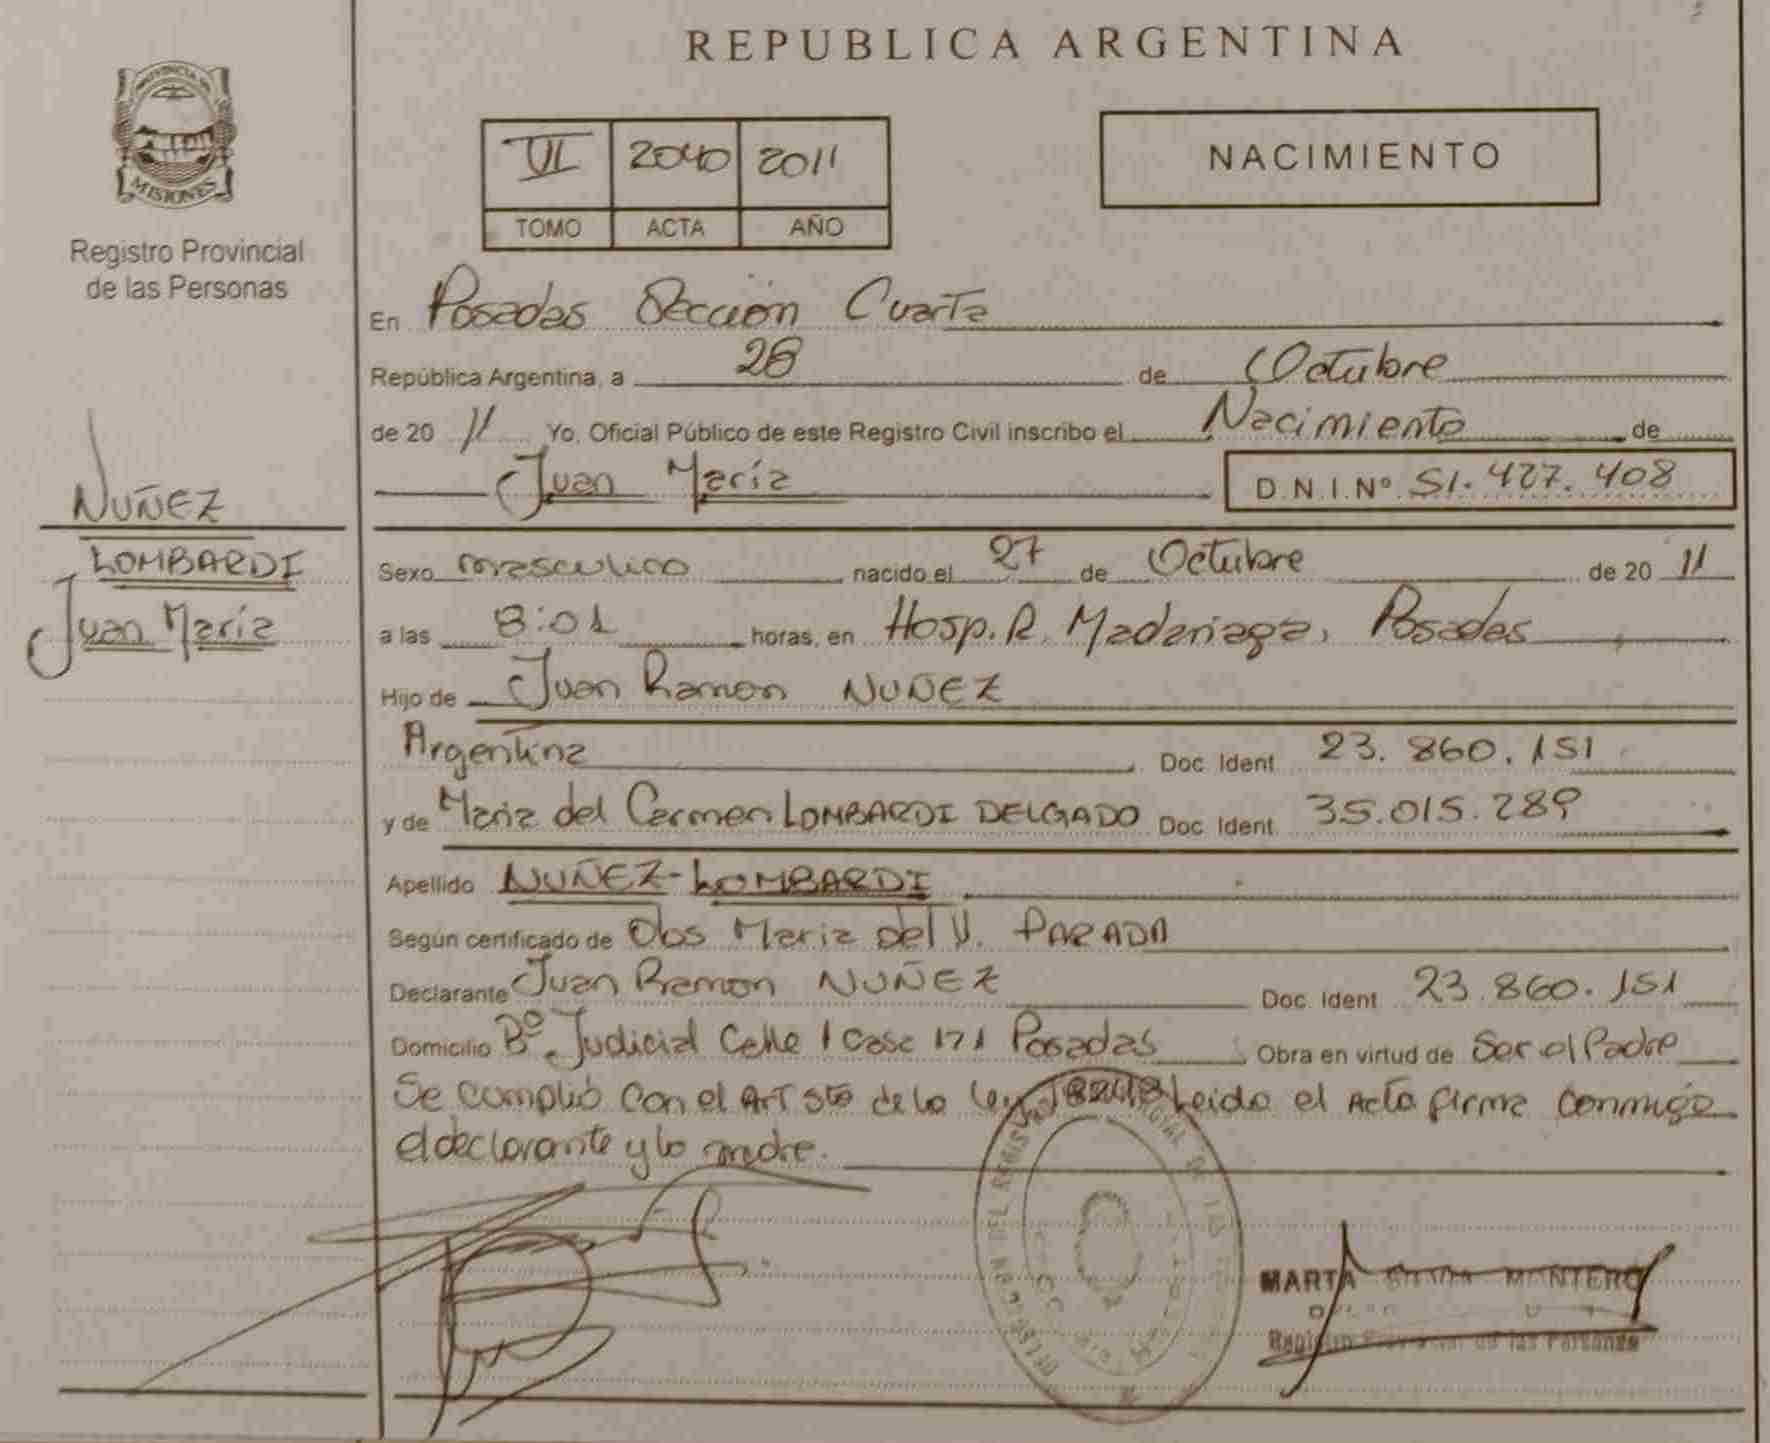 REPUBLICA ARGENTINA
PROVINCIA DE
MISIONES
Registro Provincial
de las Personas
VI 2040 2011
TOMO ACTA AÑO
NACIMIENTO
En Posadas Sección Cuarta
República Argentina, a 28 de Octubre
de 20 11 Yo, Oficial Público de este Registro Civil inscribo el Nacimiento de
Juan María D.N.I.Nº 51.427.408
NUÑEZ
LOMBARDI
Juan María
Sexo masculino nacido el 27 de Octubre de 20 11
a las 8:01 horas, en Hosp. R. Madariaga, Posadas
Hijo de Juan Ramon NUÑEZ
Argentina Doc. Ident 23.860.151
y de Maria del Carmen LOMBARDI DELGADO Doc. Ident 35.015.289
Apellido NUÑEZ-LOMBARDI
Según certificado de Obs Maria del V. PARADA
Declarante Juan Ramon NUÑEZ Doc. Ident 23.860.151
Domicilio Bº Judicial Calle 1 Casa 171 Posadas Obra en virtud de Ser el Padre
Se cumplió con el Art 5to de la Ley 18248 Leida el Acta firma conmigo
el declarante y la madre.
MARTA MONTERO
Registro Provincial de las Personas